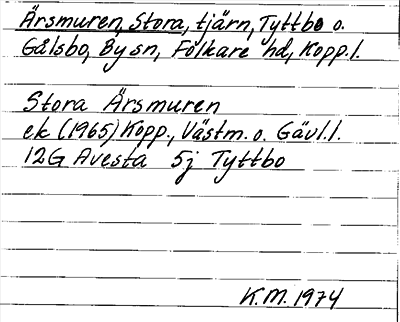 Ärsmuren, Stora, tjärn, Tyttbo o.
Gålsbo, By sn, Folkare hd, Kopp.l.
Stora Ärsmuren
ek (1965) Kopp., Västm. o. Gävl.l.
12G Avesta 5j Tyttbo
K.M. 1974